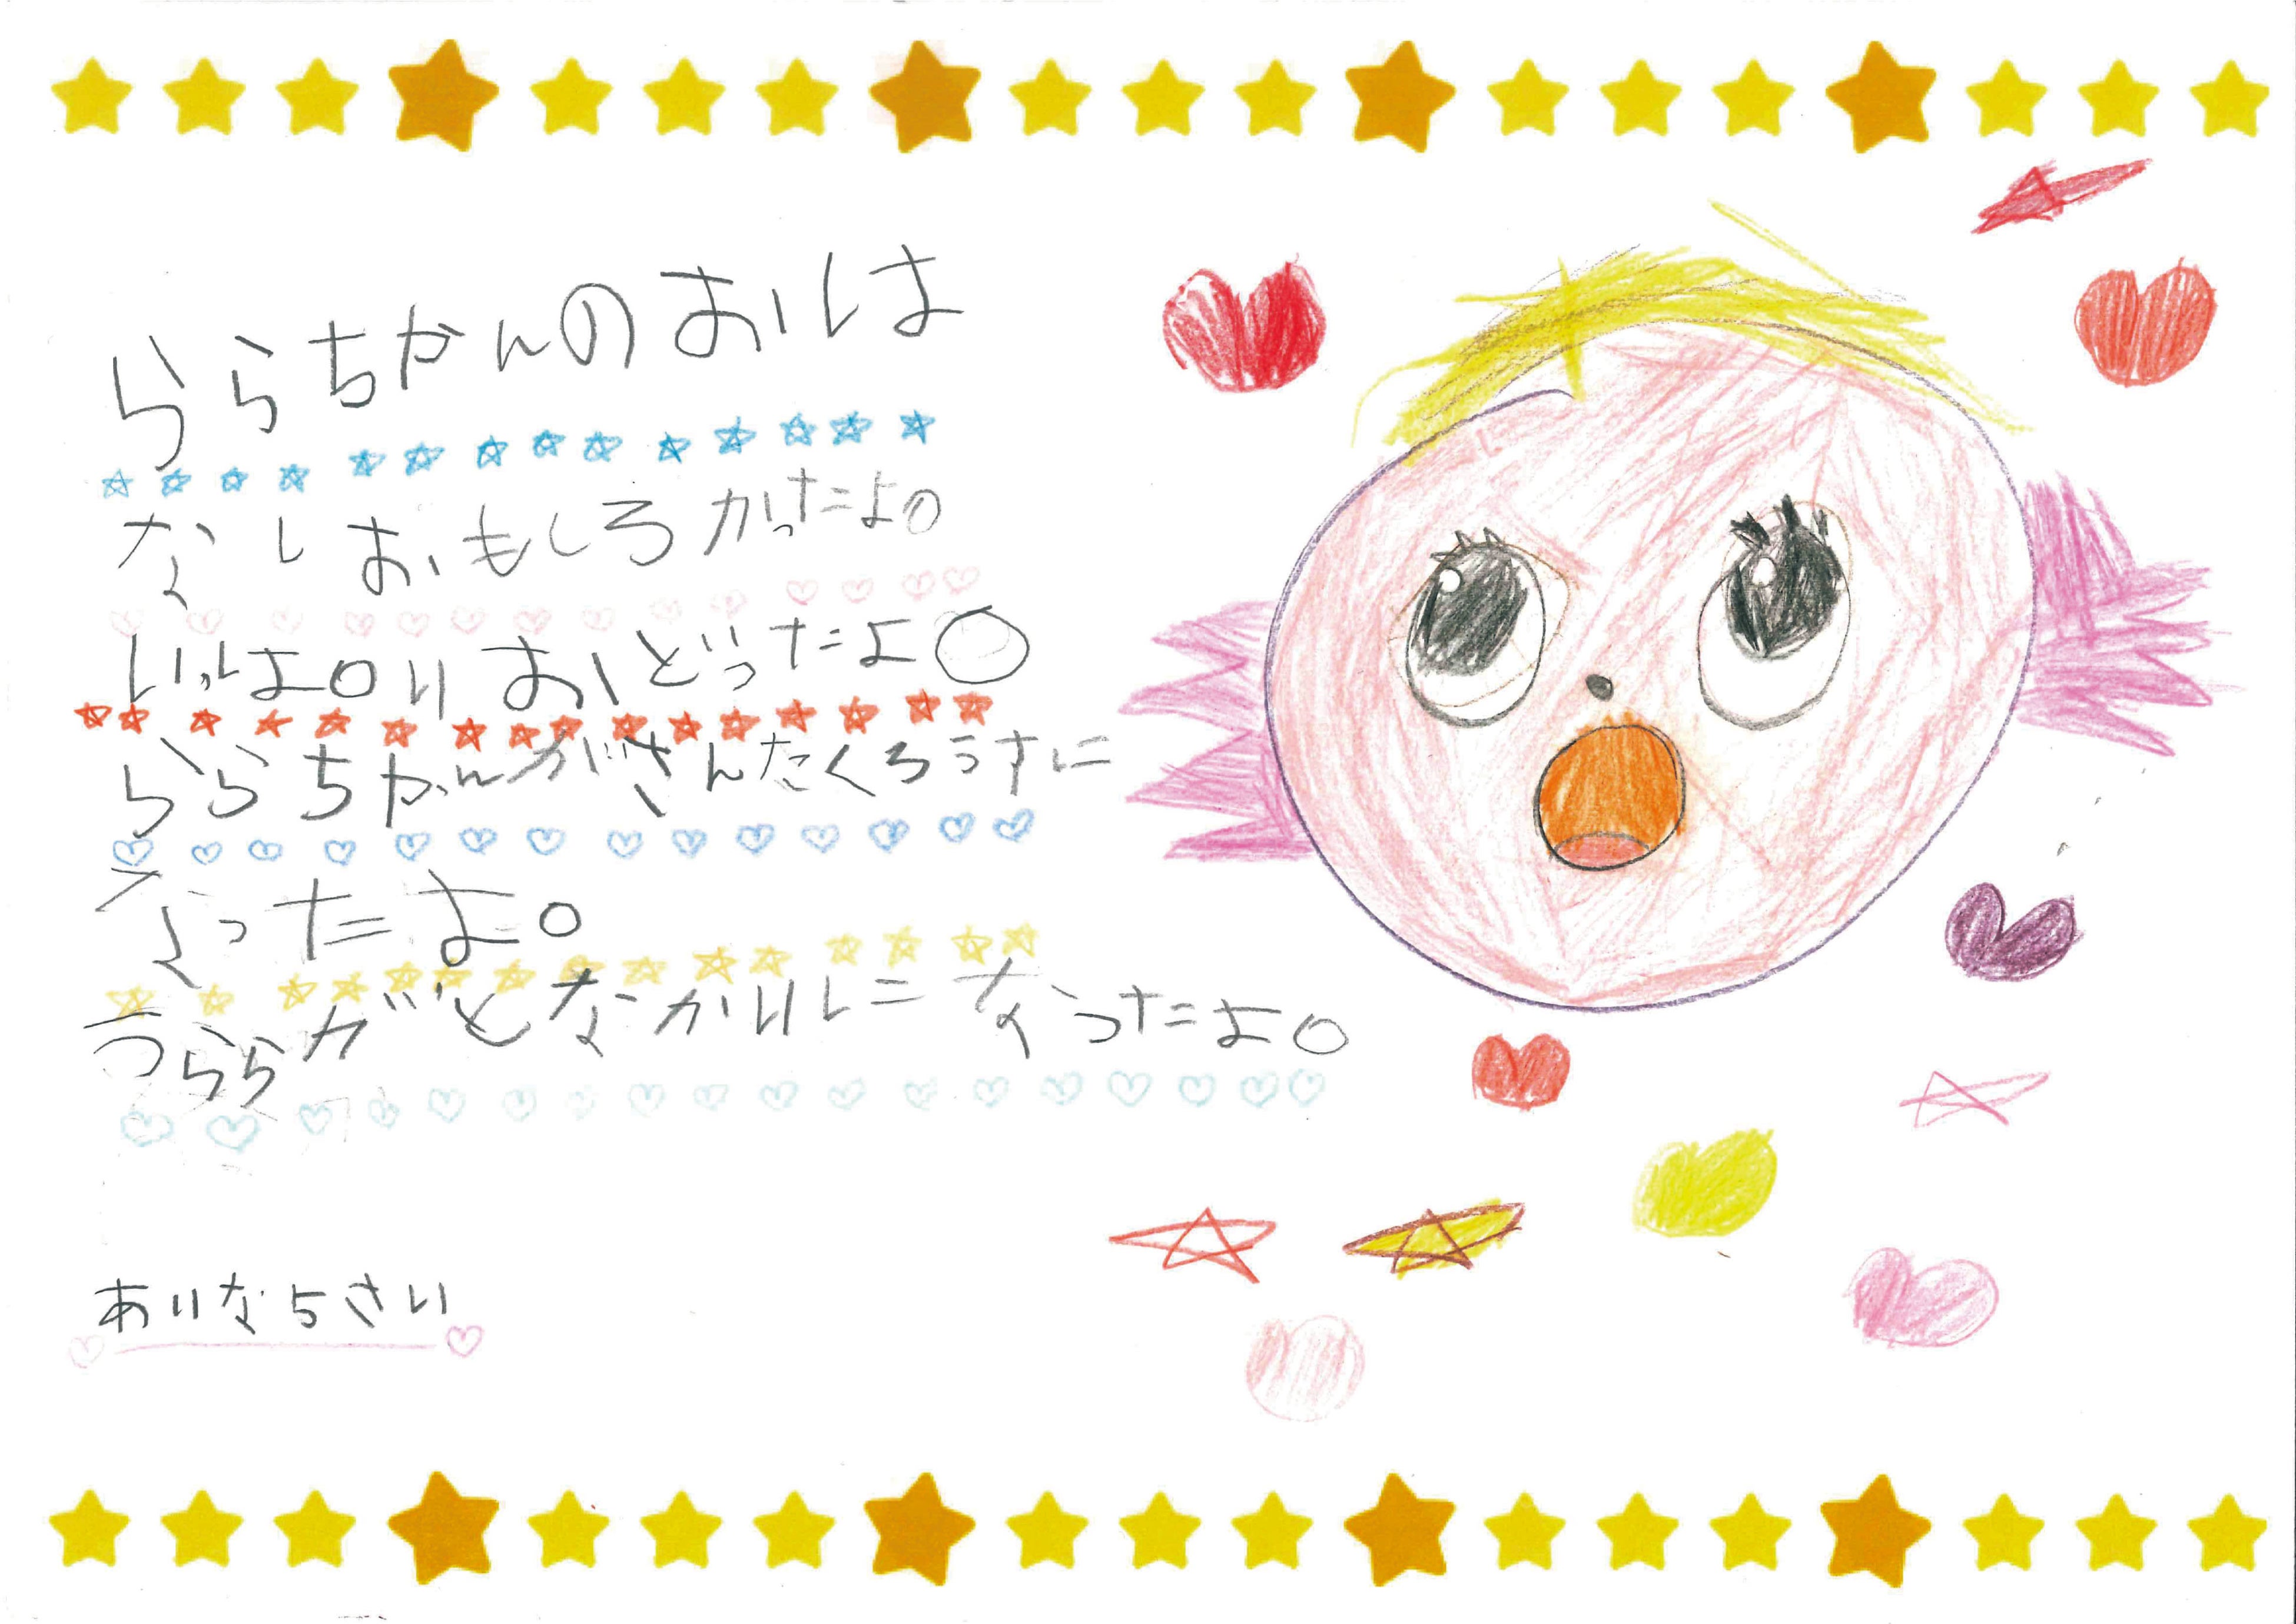 ららちゃんのおは
なしおもしろかったよ。
いっぱいおどったよ。
ららちゃんがさんたくろうすに
なったよ。
うららがとなかいになったよ。
あいな5さい